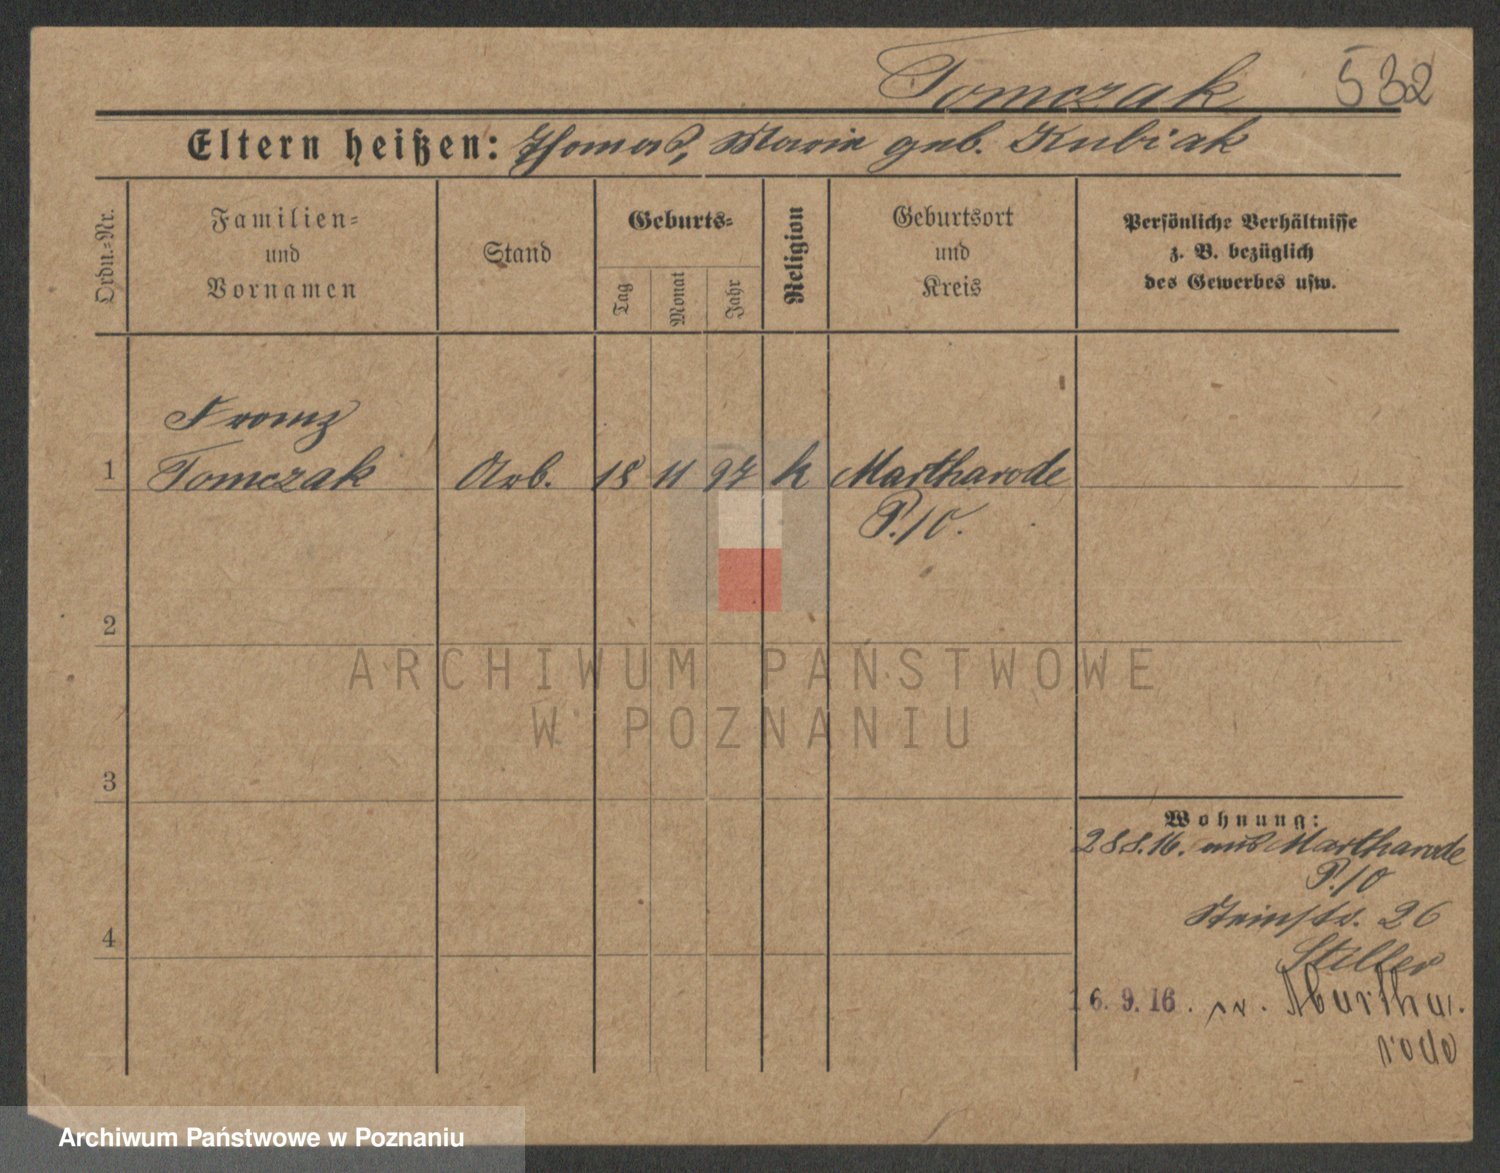 Tomczak 532
Eltern heißen: Thomas, Marie geb. Kubiak
Ordn.=Nr.
Familien=
und
Vornamen
Stand
Geburts=
Tag
Monat
Jahr
Religion
Geburtsort
und
Kreis
Persönliche Verhältnisse
z. B. bezüglich
des Gewerbes usw.
Franz
1 Tomczak Arb. 18 11 97 k Martharode
P./O.
2
ARCHIWUM PAŃSTWOWE
W POZNANIU
3
Wohnung:
28.8.16. aus Martharode
P./O
Steinstr. 26
4
Stiller
16.9.16. n. Martha
rode
Archiwum Państwowe w Poznaniu